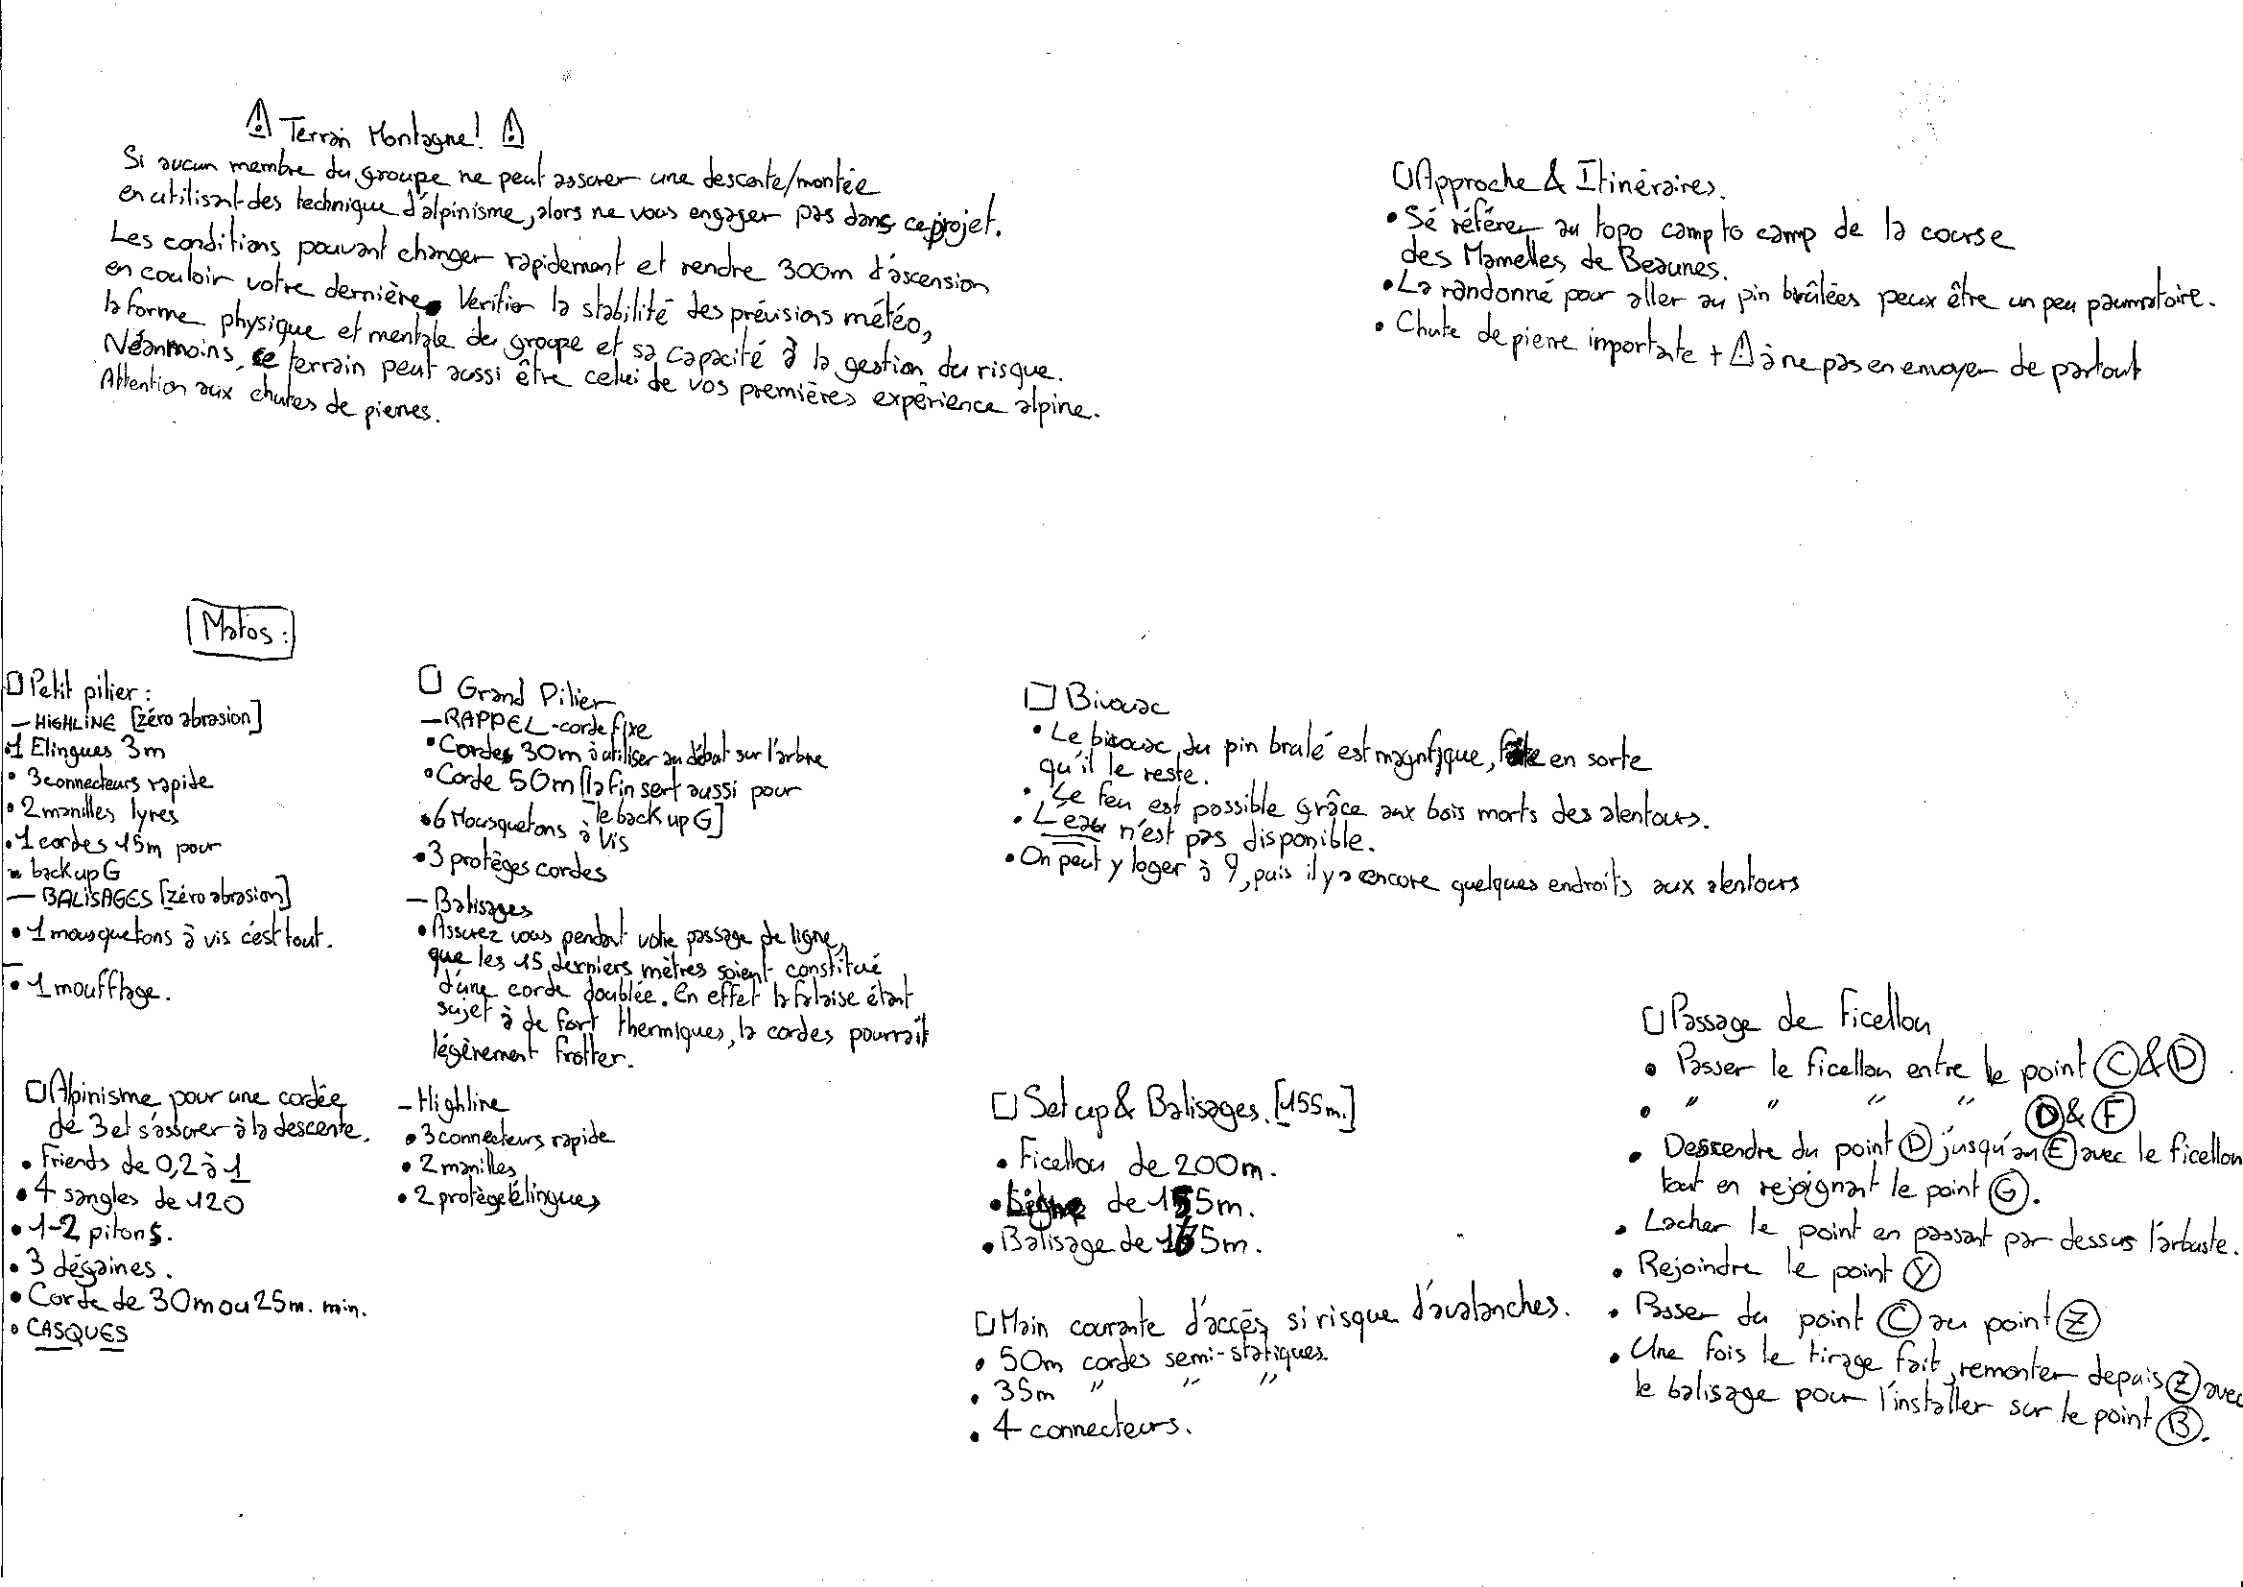 ⚠ Terrain Montagne! ⚠
Si aucun membre du groupe ne peut assurer une descente/montée
en utilisant des technique d'alpinisme, alors ne vous engager pas dans ce projet.
Les conditions pouvant changer rapidement et rendre 300m d'ascension
en couloir votre dernière. Verifier la stabilité des prévisions météo,
la forme physique et mentale du groupe et sa capacité à la gestion du risque.
Néanmoins, ce terrain peut aussi être celui de vos premières expérience alpine.
Attention aux chutes de pierres.
□ Approche & Itinéraires.
• Sé référer au topo camp to camp de la course
des Mamelles de Beaunes.
• La randonné pour aller au pin brûlées peux être un peu paumatoire.
• Chute de pierre importante + ⚠ à ne pas en envoyer de partout
Matos :
□ Petit pilier :
— HIGHLINE [zéro abrasion]
• 1 Elingues 3m
• 3 connecteurs rapide
• 2 manilles lyres
• 1 cordes 15m pour
back up G
— BALISAGES [zéro abrasion]
• 1 mousquetons à vis c'est tout.
—
• 1 moufflage.
□ Alpinisme pour une cordée
de 3 et s'assurer à la descente.
• Friends de 0,2 à 1
• 4 sangles de 120
• 1-2 pitons.
• 3 dégaines.
• Corde de 30m ou 25m. min.
• CASQUES
□ Grand Pilier
— RAPPEL - corde fixe
• Cordes 30m à utiliser au début sur l'arbre
• Corde 50m [la fin sert aussi pour
le back up G]
• 6 Mousquetons à vis
• 3 protèges cordes
— Balisages
• Assurez vous pendant votre passage de ligne,
que les 15 derniers mètres soient constitué
d'une corde doublée. En effet la falaise étant
sujet à de fort thermiques, la cordes pourrait
légèrement frotter.
— Highline
• 3 connecteurs rapide
• 2 manilles
• 2 protège élingues
□ Bivouac
• Le bivouac du pin brulé est magnifique, faite en sorte
qu'il le reste.
• Le feu est possible grâce aux bois morts des alentours.
• L'eau n'est pas disponible.
• On peut y loger à 9, puis il y a encore quelques endroits aux alentours
□ Set up & Balisages. [155m.]
• Ficellou de 200m.
• Ligne de 155m.
• Balisage de 165m.
□ Main courante d'accès si risque d'avalanches.
• 50m cordes semi-statiques.
• 35m " " "
• 4 connecteurs.
□ Passage de Ficellou
• Passer le ficellou entre le point C & D.
• " " " " D & F
• Descendre du point D jusqu'au E avec le ficellou
tout en rejoignant le point G.
• Lacher le point en passant par dessus l'arbuste.
• Rejoindre le point Y
• Passer du point C au point Z
• Une fois le tirage fait, remonter depuis Z avec
le balisage pour l'installer sur le point B.